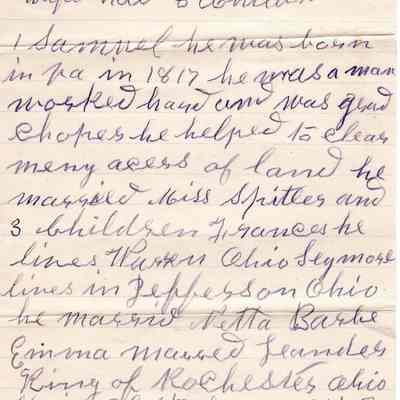 wife had 5 children
1 Samuel he was born
in pa in 1817 he was a man
worked hard and was good
choper he helped to clear
meny acers of land he
married Miss Spitler and
3 children Frances he
lives Warren Ohio Seymore
lives in Jefferson Ohio
he married Netta Barbe
Emma married Leander
King of Rochester Ohio